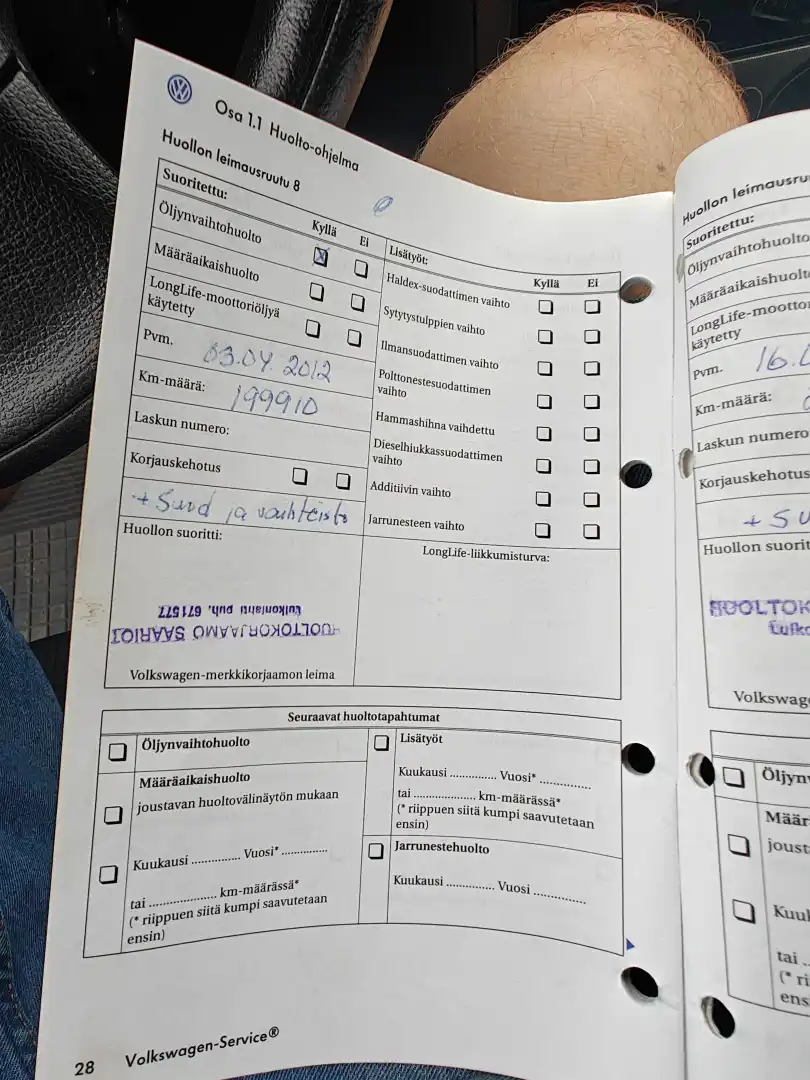 Osa 1.1 Huolto-ohjelma
Huollon leimausruutu 8
Suoritettu:
Kyllä Ei
Öljynvaihtohuolto
Määräaikaishuolto
LongLife-moottoriöljyä
käytetty
Pvm. 03.04.2012
Km-määrä: 199910
Laskun numero:
Korjauskehotus
+ Suod ja vaihteisto
Huollon suoritti:
HUOLTOKORJAAMO SAARIO
puh. 671577
Volkswagen-merkkikorjaamon leima
Lisätyöt:
Kyllä Ei
Haldex-suodattimen vaihto
Sytytystulppien vaihto
Ilmansuodattimen vaihto
Polttonestesuodattimen
vaihto
Hammashihna vaihdettu
Dieselhiukkassuodattimen
vaihto
Additiivin vaihto
Jarrunesteen vaihto
LongLife-liikkumisturva:
Seuraavat huoltotapahtumat
Öljynvaihtohuolto
Määräaikaishuolto
joustavan huoltovälinäytön mukaan
Kuukausi ............... Vuosi* ..............
tai .................... km-määrässä*
(* riippuen siitä kumpi saavutetaan
ensin)
Lisätyöt
Kuukausi .............. Vuosi* ...............
tai .................... km-määrässä*
(* riippuen siitä kumpi saavutetaan
ensin)
Jarrunestehuolto
Kuukausi .............. Vuosi ...............
28 Volkswagen-Service®
Huollon leimausru
Suoritettu:
Öljynvaihtohuolto
Määräaikaishuolt
LongLife-mootto
käytetty
Pvm. 16.
Km-määrä:
Laskun numero
Korjauskehotus
+ Su
Huollon suorit
HUOLTOK
Volkswag
Öljyn
Määr
joust
Kuu
tai ..
(* ri
ens